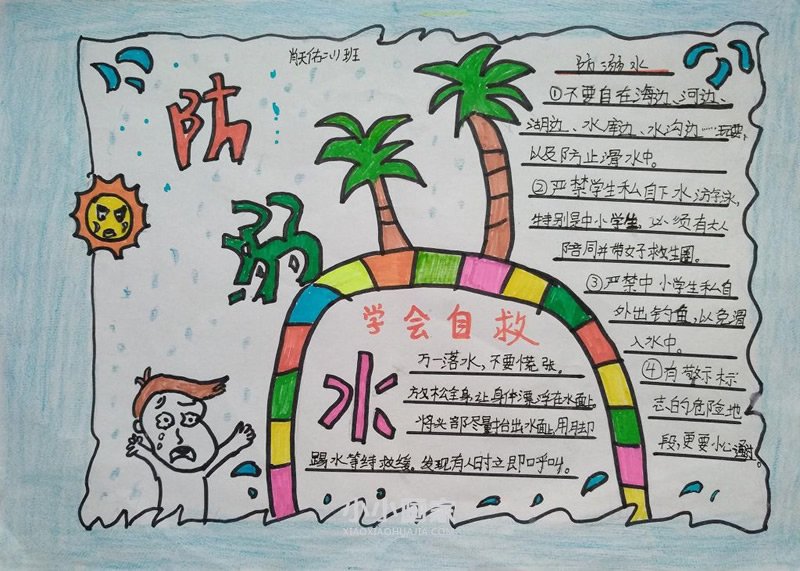 训班
防
溺
水
防溺水
①不要自在海边、河边、
湖边、水库边、水沟边……玩耍,
以及防止滑水中。
②严禁学生私自下水游泳,
特别是中小学生,必须有大人
陪同并带好救生圈。
③严禁中小学生私自
外出钓鱼,以免溺
入水中。
④有警示标
志的危险地
段,更要小心
学会自救
万一落水,不要慌张。
放松全身,让身体漂浮在水面上
将头部尽量抬出水面,用脚
踢水等待救缓。发现有人时立即呼叫。
小小画家
XIAOXIAOHUAJIA.COM